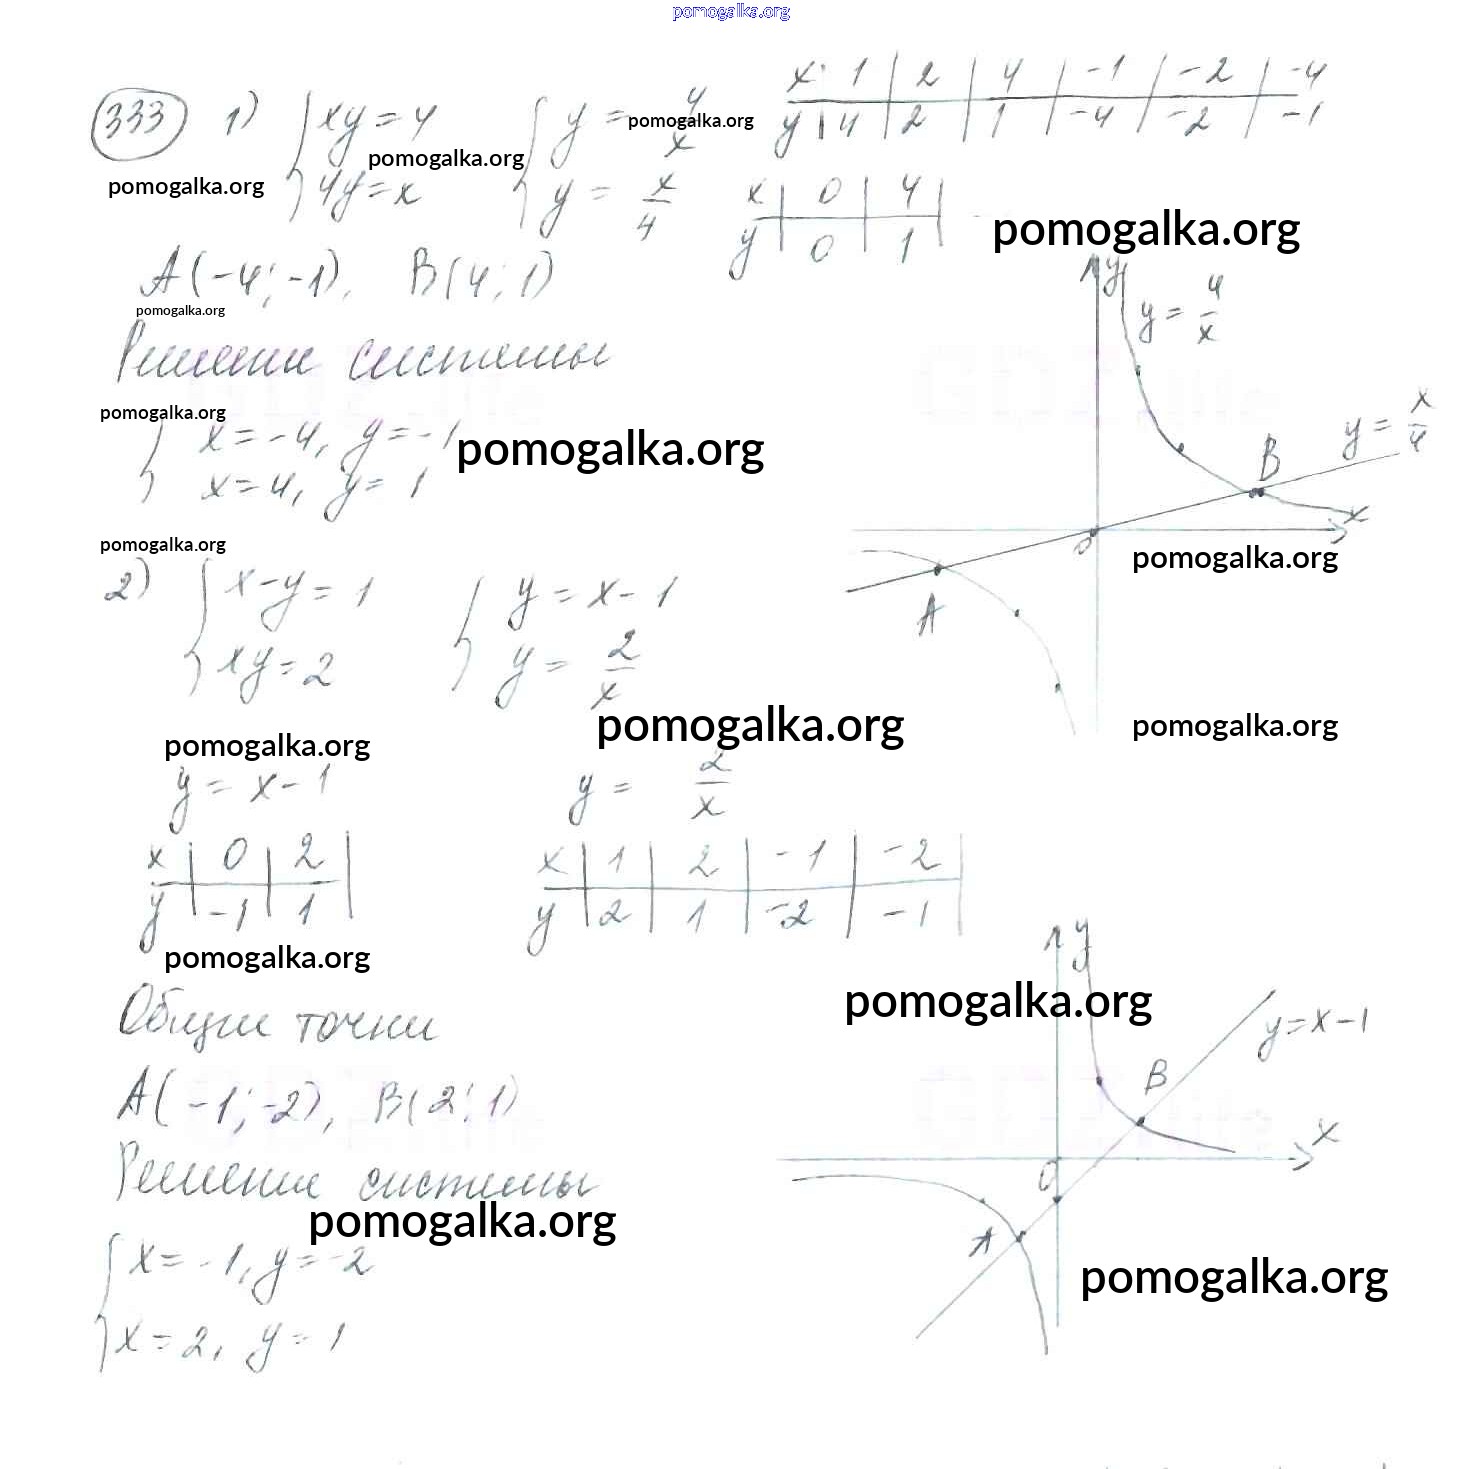 pomogalka.org
333 1) { xy = 4 { y = 4/x
4y = x y = x/4
x 1 2 4 -1 -2 -4
y 4 2 1 -4 -2 -1
pomogalka.org
pomogalka.org
pomogalka.org
x 0 4
y 0 1
pomogalka.org
A(-4; -1), B(4; 1)
pomogalka.org
Решение системы
pomogalka.org
{ x = -4, y = -1
x = 4, y = 1
pomogalka.org
y
y = 4/x
y = x/4
B
x
0
A
pomogalka.org
pomogalka.org
pomogalka.org
2) { x - y = 1 { y = x - 1
xy = 2 y = 2/x
pomogalka.org
pomogalka.org
y = x - 1 y = 2/x
x 0 2
y -1 1
x 1 2 -1 -2
y 2 1 -2 -1
pomogalka.org
pomogalka.org
Общие точки
A(-1; -2), B(2; 1)
Решение системы
pomogalka.org
{ x = -1, y = -2
x = 2, y = 1
y
y = x - 1
B
x
0
A
pomogalka.org